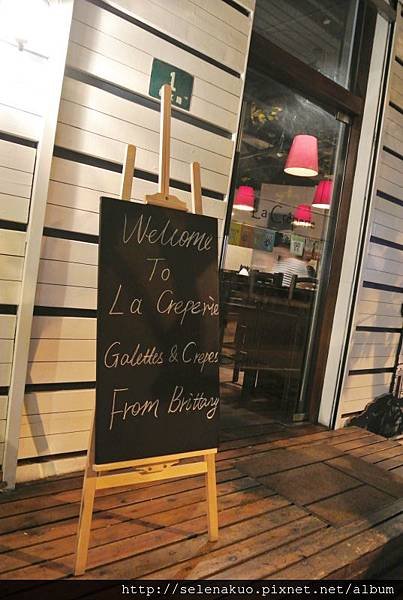 1
Welcome
To
La Creperie
Galettes & Crepes
From Brittany
La Crêpe
http://selenakuo.pixnet.net/album